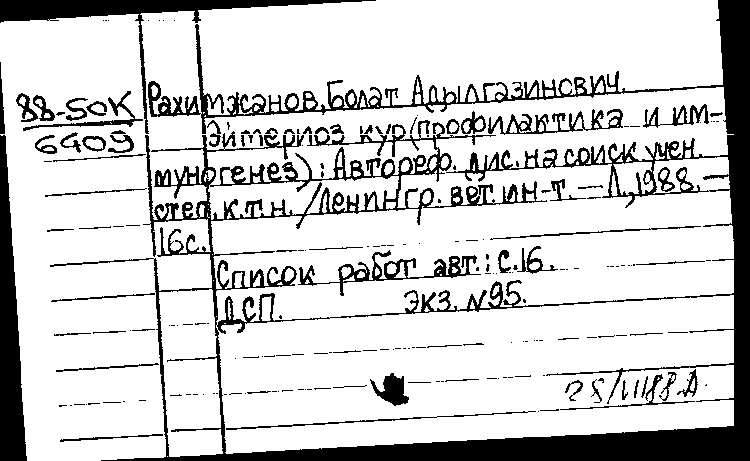 88-50К Рахимжанов, Болат Адылгазинович.
6409 Эймериоз кур (профилактика и им-
муногенез) : Автореф. дис. на соиск учен.
степ. к.т.н. / Ленингр. вет. ин-т. — Л., 1988. —
16с.
Список работ авт.: с.16.
ДСП. Экз. №95.